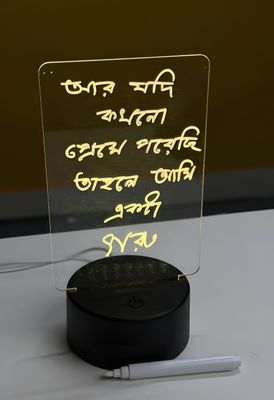 আর যদি
কখনো
প্রেমে পরেছি
তাহলে আমি
একটা
গরু